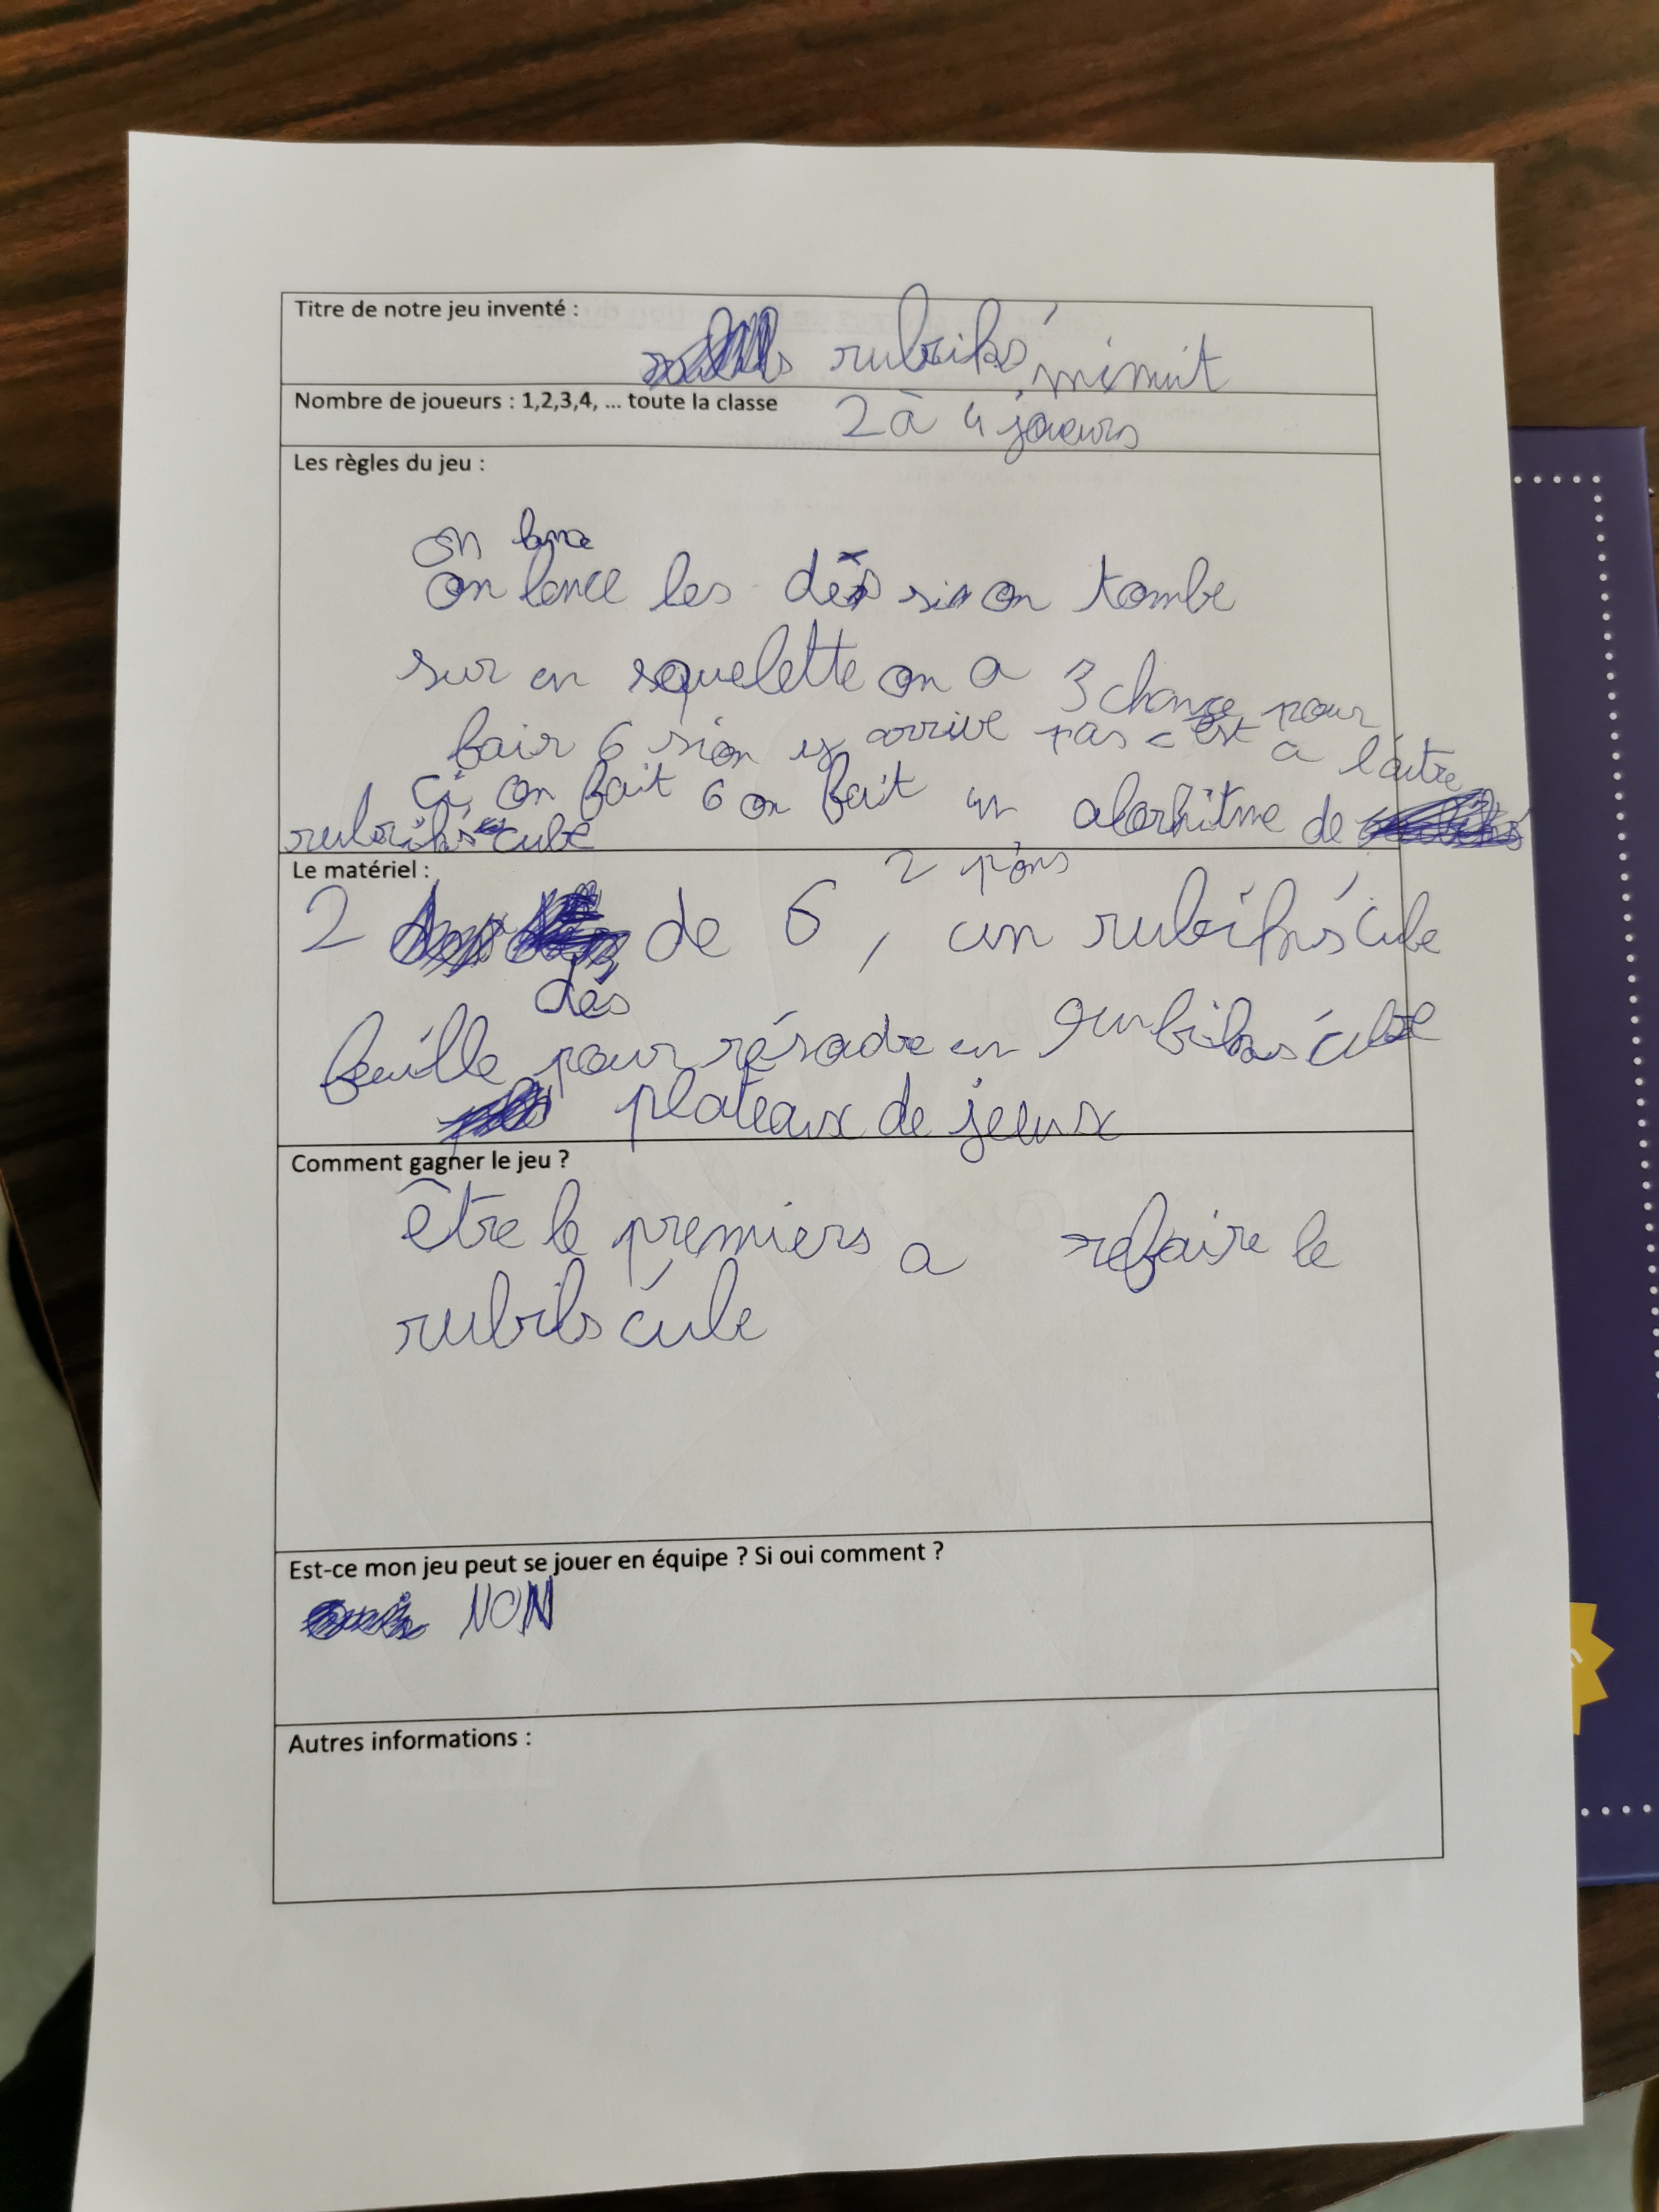 Titre de notre jeu inventé :
rubriks minuit
Nombre de joueurs : 1,2,3,4, ... toute la classe 2 à 4 joueurs
Les règles du jeu :
on lance
on lance les dés si on tombe
sur en squelette on a 3 chance pour
fair 6 si on y arrive pas c'est a l'autre
ci on fait 6 on fait un alorhitme de
rubriks cube
Le matériel : 2 pions
2 de 6, un rubiks cube
dés
feuille pour résoudre un rubiks cube
plateaux de jeux
Comment gagner le jeu ?
être le premiers a refaire le
rubiks cube
Est-ce mon jeu peut se jouer en équipe ? Si oui comment ?
NON
Autres informations :